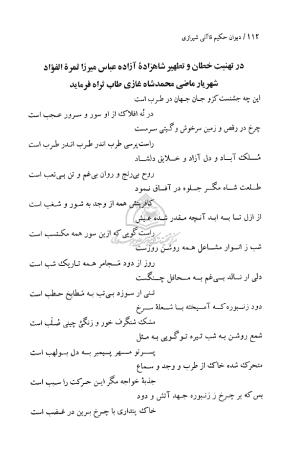 ۱۱۲ / دیوان حکیم قاآنی شیرازی
در تهنیت خطان و تطهیر شاهزادهٔ آزاده عباس میرزا ثمرة الفؤاد
شهریار ماضی محمدشاه غازی طاب ثراه فرماید
این چه جشنست کزو جان جهان در طرب است
در نُه افلاک از او سور و سرور عجب است
چرخ در رقص و زمین سرخوش و گیتی سرمست
راست پرسی طرب اندر طرب اندر طرب است
مُلک آباد و دل آزاد و خلایق دلشاد
روح بی‌رنج و روان بی‌غم و تن بی‌تعب است
طلعت شاه مگر جلوه در آفاق نمود
کافرینش همه از وجد به شور و شغب است
از ازل تا به ابد آنچه مقدر شده عیش
راست گویی که ازین سور همه مکتسب است
شب ز انوار مشاعل همه روشن روزست
روز از دود مَجامر همه تاریک شب است
دلی ار نالد بی‌غم به محافل چنگست
تنی ار سوزد بی‌تب به مَطابخ حطب است
دود زنبوره که آمیخته با شعلهٔ سرخ
مشک شنگرف خور و زنگیّ چینی سُلَب است
شمع روشن به شب تیره توگویی به مثل
پرتو مهر پیمبر به دل بولهب است
متحرک شده خاک از طرب و وجد و سماع
جذبهٔ خواجه مگر این حرکت را سبب است
بس که بر چرخ ز زنبوره جهد آتش و دود
خاک پنداری با چرخ برین در غضب است